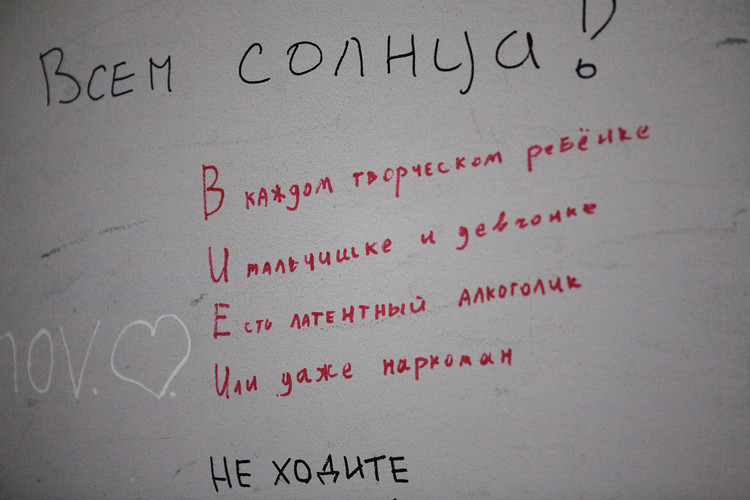 Всем солнца!
В каждом творческом ребёнке
И мальчишке и девчонке
Есть латентный алкоголик
Или даже наркоман
nov. ♡.
НЕ ХОДИТЕ